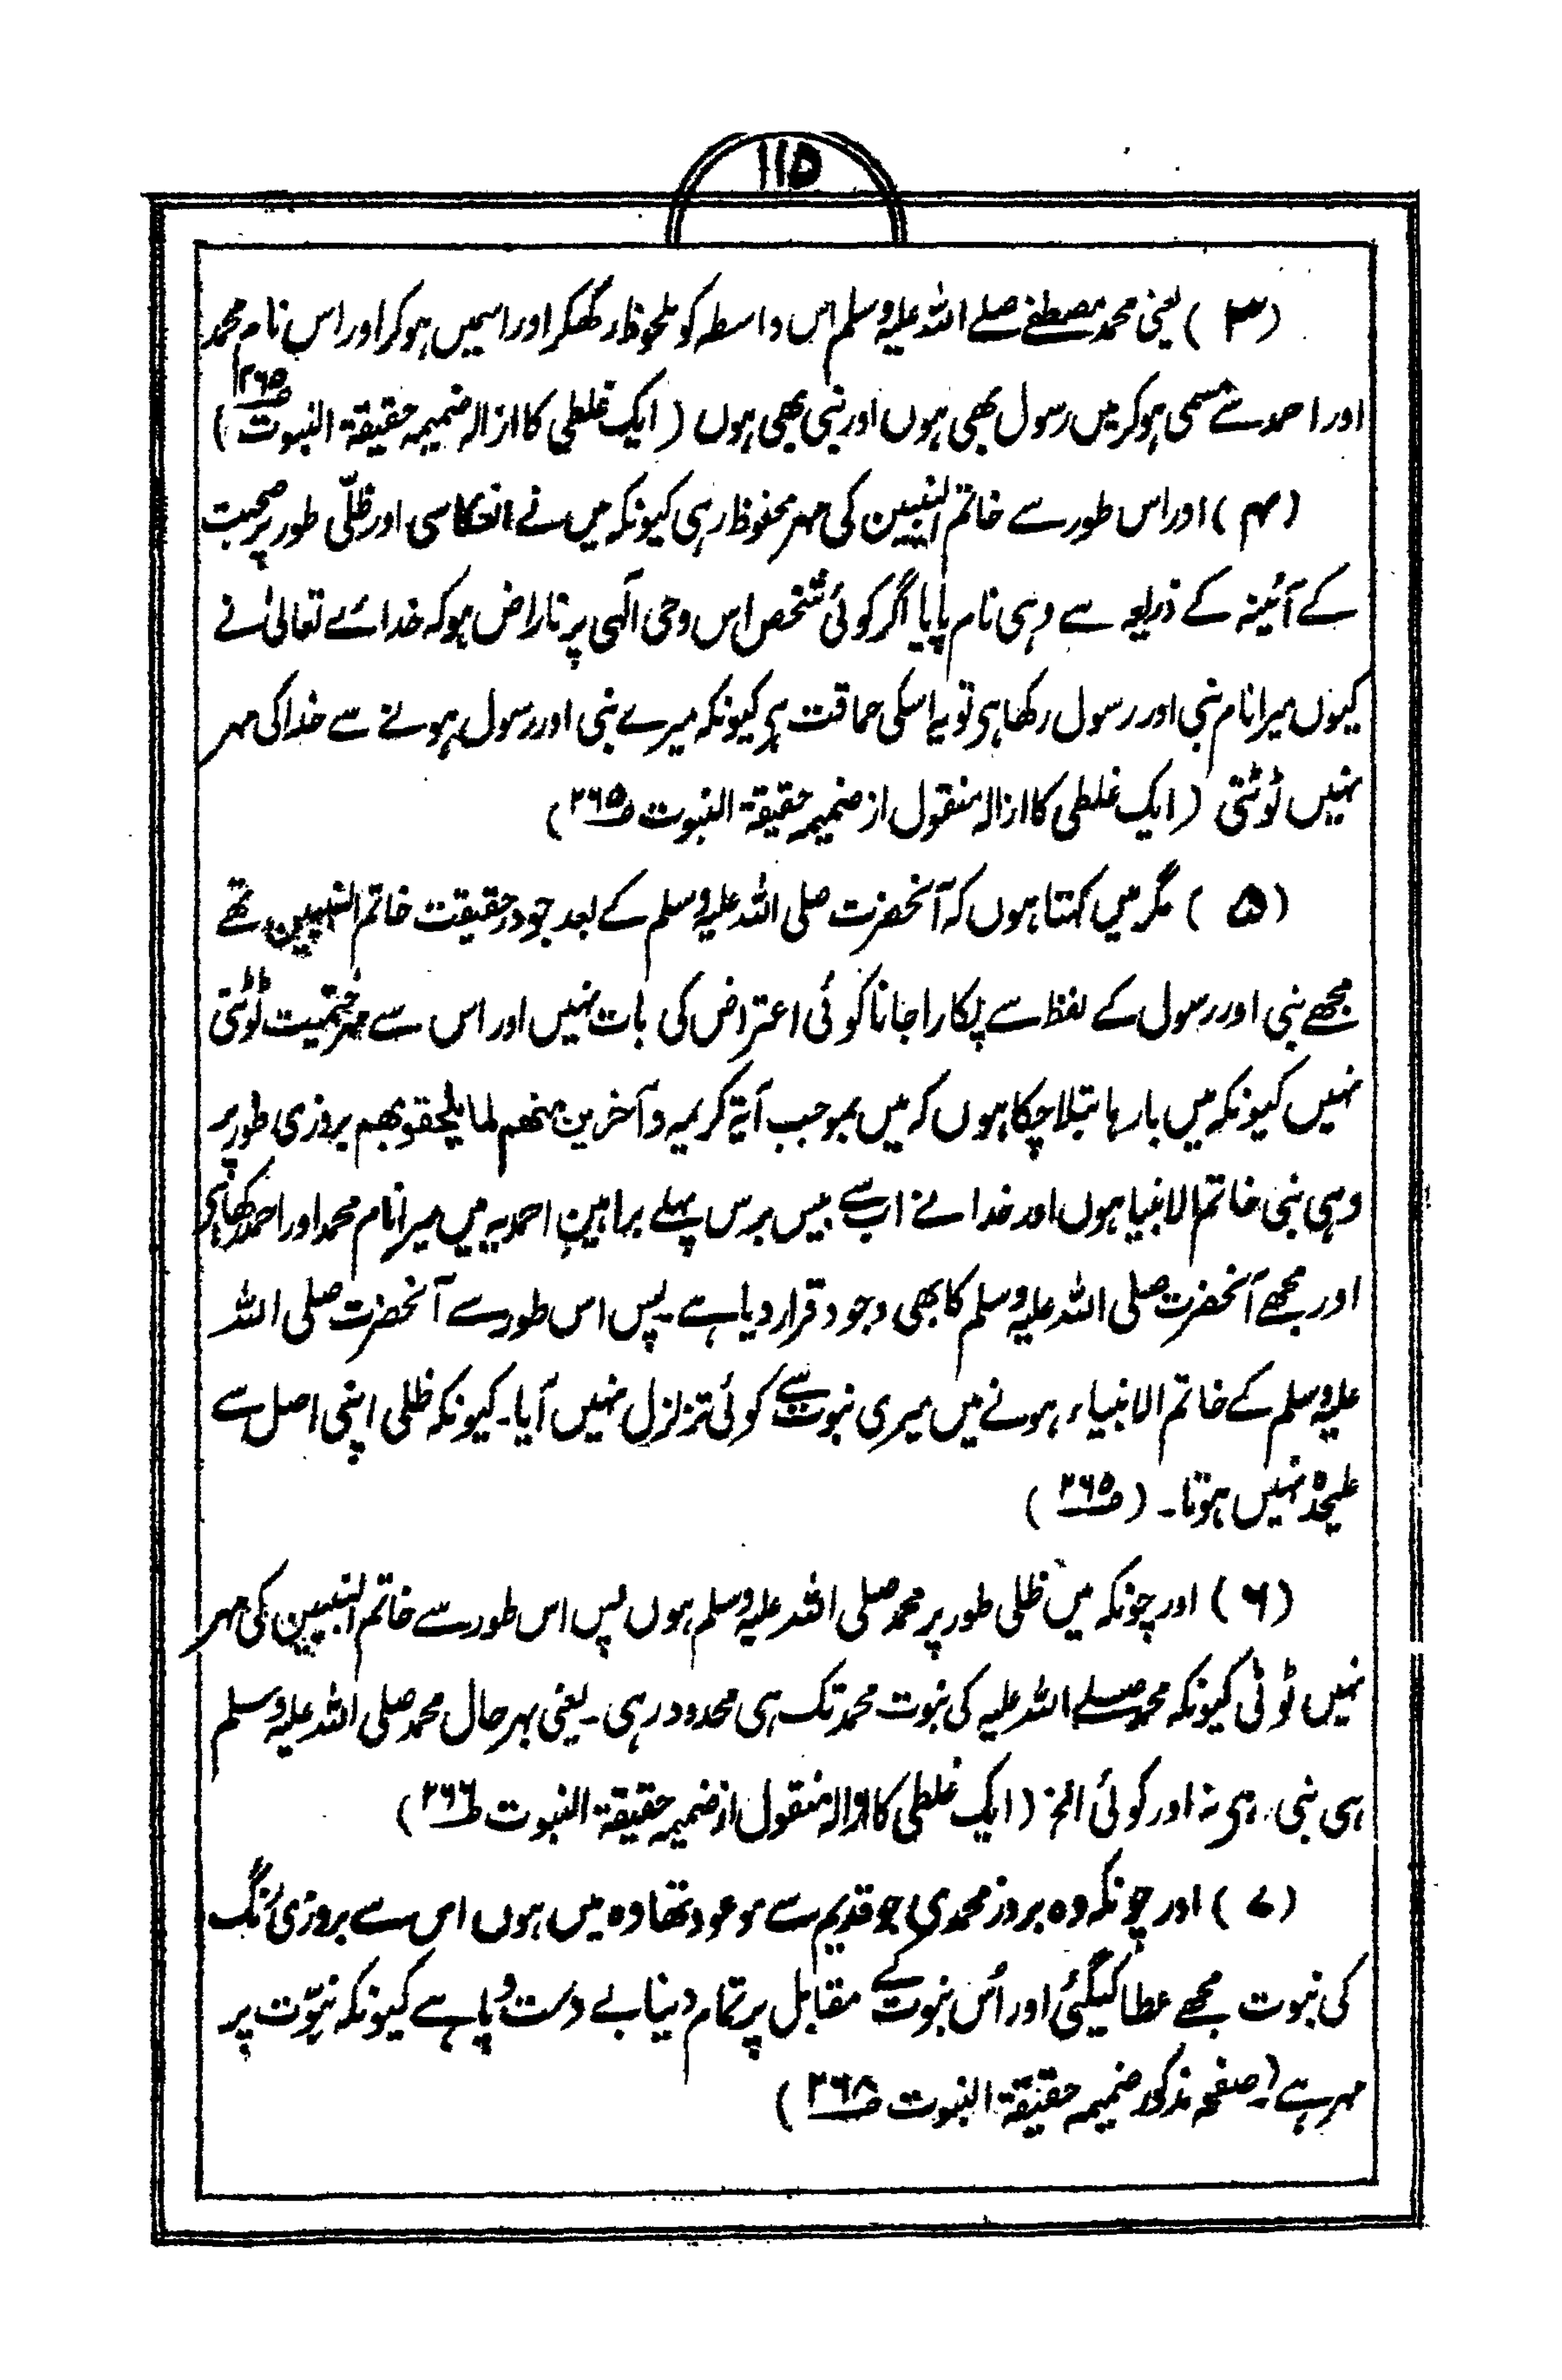 ۱۱۵
(۳) یعنی محمد مصطفےٰ صلے اللہ علیہ وسلم اس واسطہ کو ملحوظ رکھکر اور اسمیں ہوکر اور اس نام محمد
اور احمد سے مسمی ہوکر میں رسول بھی ہوں اور نبی بھی ہوں (ایک غلطی کا ازالہ ضمیمہ حقیقۃ النبوت ص۲۶۵)
(۴) اور اس طور سے خاتم النبیین کی مہر محفوظ رہی کیونکہ میں نے انعکاسی اور ظلّی طور پر محبت
کے آئینہ کے ذریعہ سے وہی نام پایا اگر کوئی شخص اس وحی الٰہی پر ناراض ہو کہ خدائے تعالیٰ نے
کیوں میرا نام نبی اور رسول رکھا ہی تو یہ اسکی حماقت ہی کیونکہ میرے نبی اور رسول ہونے سے خدا کی مہر
نہیں ٹوٹتی (ایک غلطی کا ازالہ منقول از ضمیمہ حقیقۃ النبوت ص۲۶۵)
(۵) مگر میں کہتا ہوں کہ آنحضرت صلی اللہ علیہ وسلم کے بعد جو در حقیقت خاتم النبیین تھے
مجھے نبی اور رسول کے لفظ سے پکارا جانا کوئی اعتراض کی بات نہیں اور اس سے مہر ختمیت ٹوٹتی
نہیں کیونکہ میں بارہا بتلا چکا ہوں کہ میں بموجب آیۃ کریمہ وآخرین منھم لما یلحقو بھم بروزی طور پر
وہی نبی خاتم الانبیا ہوں اور خدا نے اب سے بیس برس پہلے براہین احمدیہ میں میرا نام محمد اور احمد رکھا ہی
اور مجھے آنحضرت صلی اللہ علیہ وسلم کا بھی وجود قرار دیا ہے۔ پس اس طور سے آنحضرت صلی اللہ
علیہ وسلم کے خاتم الانبیاء ہونے میں میری نبوت سے کوئی تزلزل نہیں آیا۔ کیونکہ ظلی اپنی اصل سے
علیحدہ نہیں ہوتا۔ (ص۲۶۵)
(۶) اور چونکہ میں ظلی طور پر محمد صلی اللہ علیہ وسلم ہوں پس اس طور سے خاتم النبیین کی مہر
نہیں ٹوٹی کیونکہ محمد صلے اللہ علیہ کی نبوت محمد تک ہی محدود رہی۔ یعنی بہر حال محمد صلی اللہ علیہ وسلم
ہی نبی رہی نہ اور کوئی الخ (ایک غلطی کا ازالہ منقول از ضمیمہ حقیقۃ النبوت ص۲۶۶)
(۷) اور چونکہ وہ بروز محمدی جو قدیم سے موعود تھا وہ میں ہوں اس سے بروزی رنگ
کی نبوت مجھے عطا کیگئی اور اُس نبوت کے مقابل پر تمام دنیا بے دست و پا ہے کیونکہ نبوّت پر
مہر ہے (صفحہ مذکور ضمیمہ حقیقۃ النبوت ص۲۶۸)